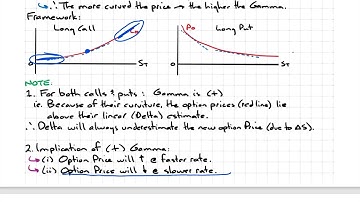 ∴ The more curved the price → the higher the Gamma.
Framework:
Long Call
Long Put
Po
0
ST
0
ST
NOTE:
1. For both calls & puts : Gamma is (+)
ie. Because of their curviture, the option prices (red line) lie
above their linear (Delta) estimate.
∴ Delta will always underestimate the new option Price (due to ΔS).
2. Implication of (+) Gamma:
↳ (i) Option Price will ↑ @ faster rate.
↳ (ii) Option Price will ↓ @ slower rate.